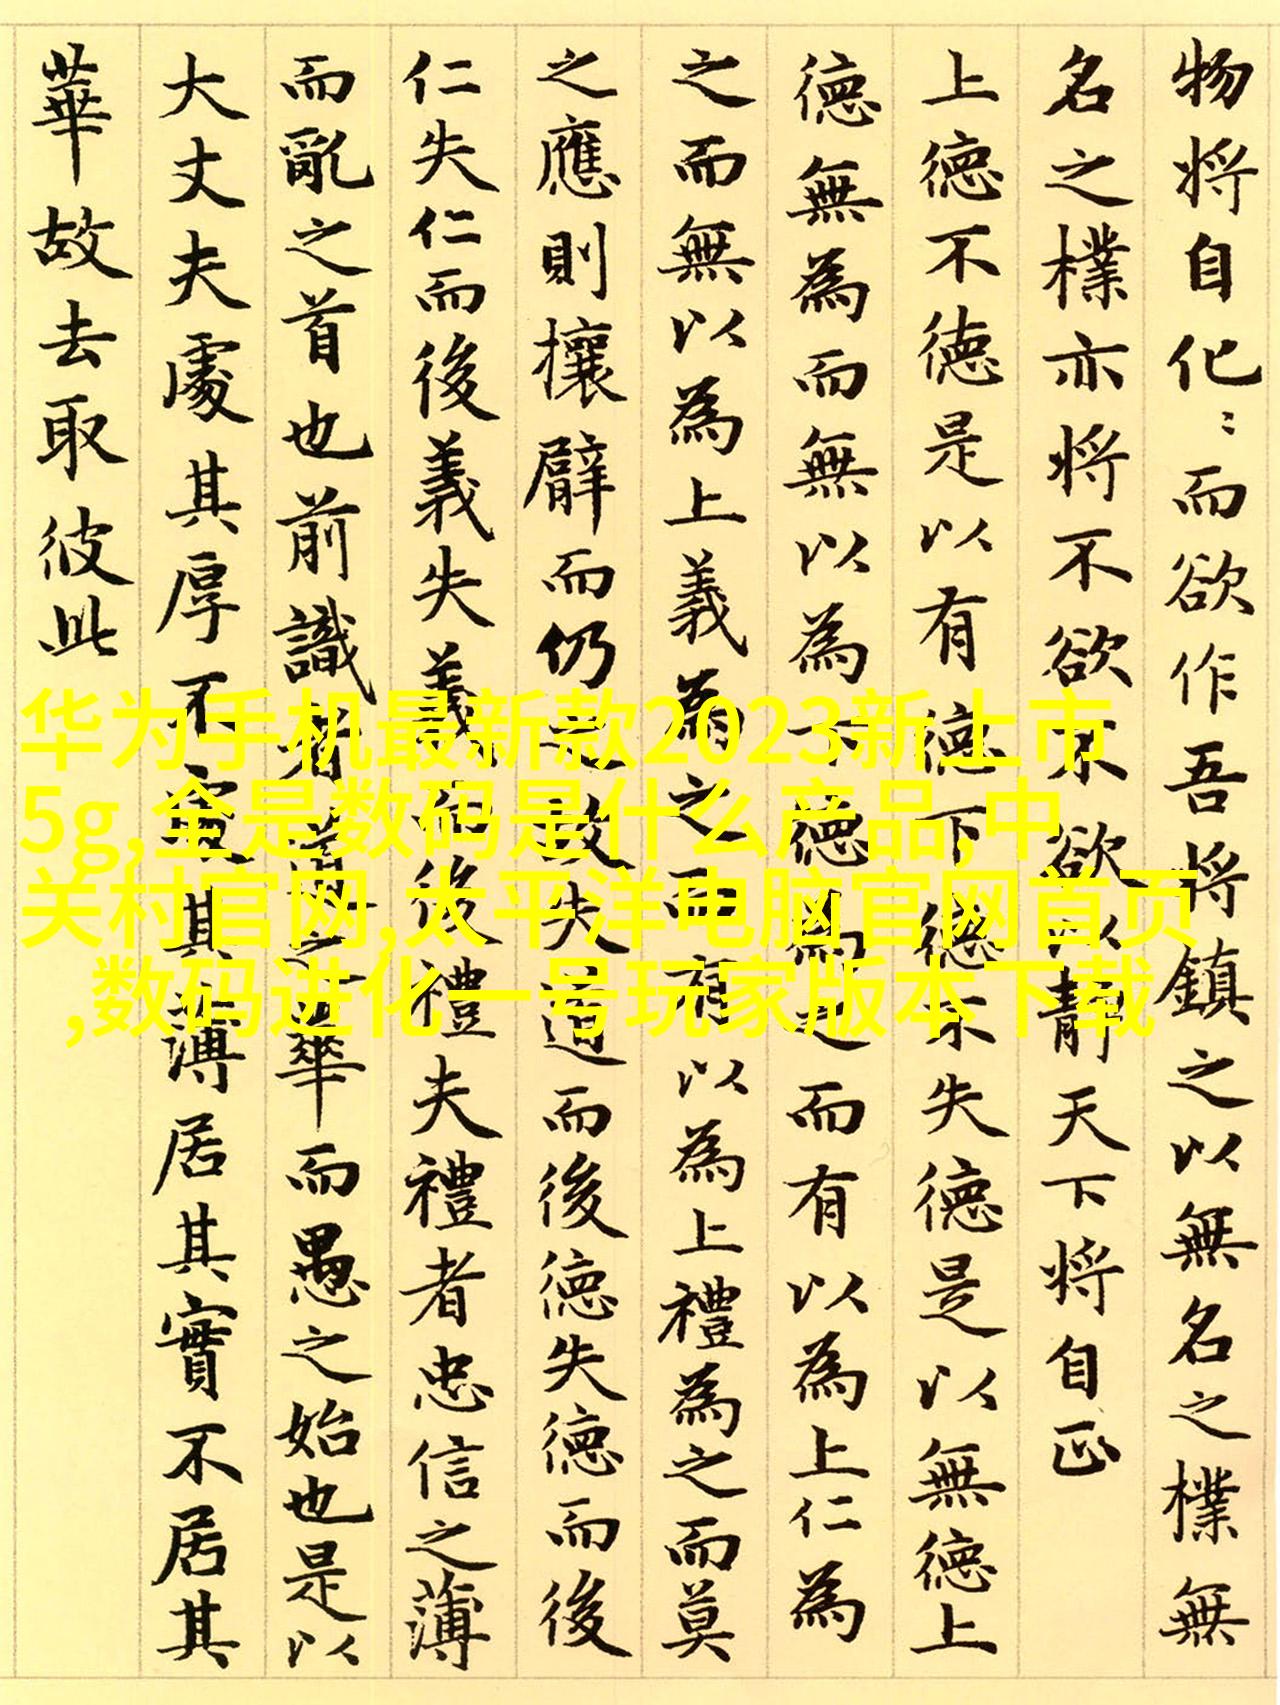 物将自化〻而欲作吾将鎮之以無名之樸無
名之樸亦将不欲不欲以靜天下将自正
上德不德是以有德下德不失德是以無德上
德無為而無以為下德為之而有以為上仁為
之而無以為上義為之而有以為上禮為之而莫
之應則攘臂而仍之故失道而後德失德而後
仁失仁而後義失義而後禮夫禮者忠信之薄
而亂之首也前識者道之華而愚之始也是以
大丈夫處其厚不處其薄居其實不居其
華故去取彼此
华为手机最新款2023新上市
5g,全是数码是什么产品,中
关村官网,太平洋电脑官网首页
,数码进化一号玩家版本下载